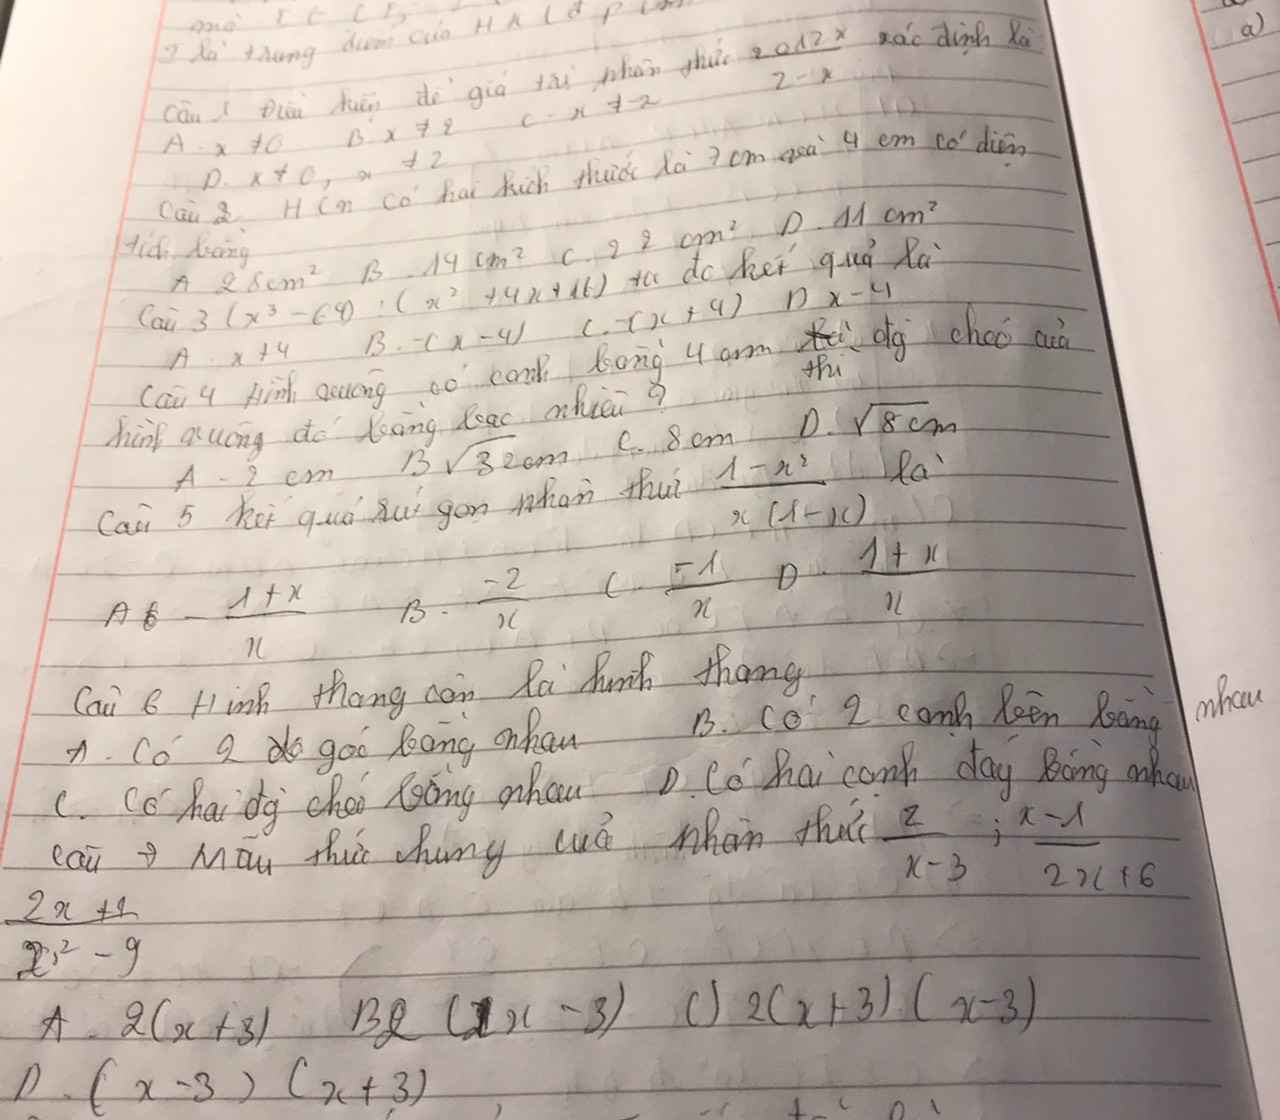 là trung điểm của HK
Câu 1 Điều kiện để giá trị phân thức 2012x / 2-x xác định là
A. x ≠ 0 B x ≠ 2 C. x ≠ -2
D. x ≠ 0, x ≠ 2
Câu 2 HCN có hai kích thước là 7cm và 4 cm có diện
tích bằng
A 28cm² B. 14 cm² C. 22 cm² D. 11 cm²
Câu 3 (x³ - 64) : (x² + 4x + 16) ta đc kết quả là
A. x+4 B. -(x-4) C. -(x+4) D x-4
Câu 4 Hình vuông có cạnh bằng 4 cm thì đg chéo của
hình vuông đó bằng bao nhiêu ?
A. 2 cm B √32cm C. 8cm D. √8cm
Câu 5 kết quả rút gọn phân thức 1-x² / x(1-x) là
A - 1+x / x B. -2 / x C. -1 / x D. 1+x / x
Câu 6 Hình thang cân là hình thang
A. Có 2 góc bằng nhau B. Có 2 cạnh bên bằng nhau
C. Có hai đg chéo bằng nhau D. Có hai cạnh đáy bằng nhau
câu 7 Mẫu thức chung của phân thức 2 / x-3 ; x-1 / 2x+6
2x+1 / x²-9
A. 2(x+3) B 2(x-3) C) 2(x+3)(x-3)
D. (x-3)(x+3)
a)